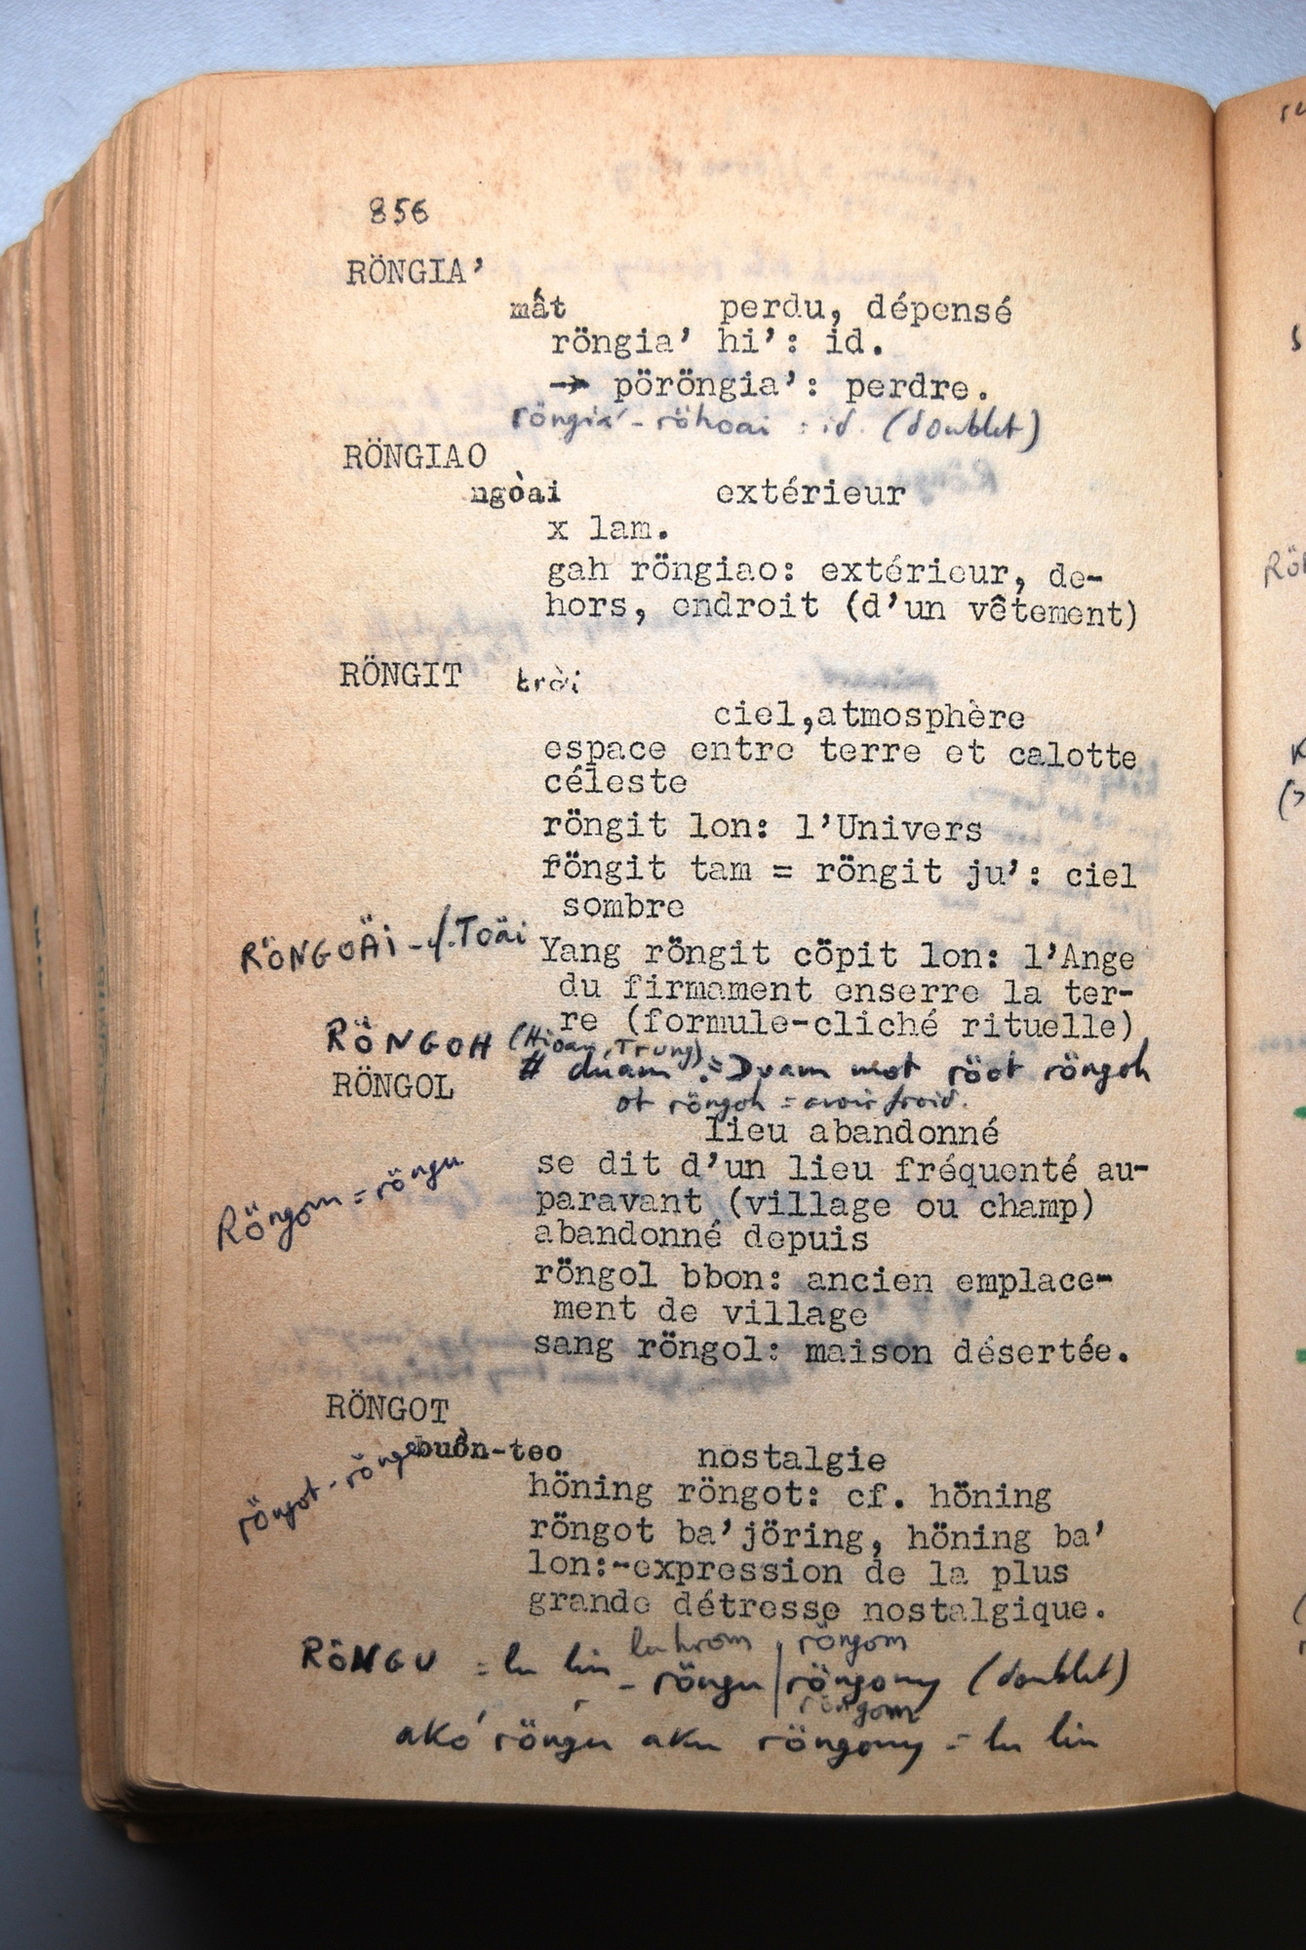 856
RÖNGIA'
mất perdu, dépensé
röngia' hi': id.
→ pöröngia': perdre.
röngia' - röhoai : id. (doublet)
RÖNGIAO
ngòai extérieur
x lam.
gah röngiao: extérieur, de-
hors, endroit (d'un vêtement)
RÖNGIT trời
ciel,atmosphère
espace entre terre et calotte
céleste
röngit lon: l'Univers
röngit tam = röngit ju': ciel
sombre
RÖNGOĂI - cf. Toăi
Yang röngit cöpit lon: l'Ange
du firmament enserre la ter-
re (formule-cliché rituelle)
RÖNGOH (Hioar, Trung)
# duam : Duam mot röot röngoh
RÖNGOL
ot röngoh = avoir froid.
lieu abandonné
se dit d'un lieu fréquenté au-
paravant (village ou champ)
abandonné depuis
Röngom = röngu
röngol bbon: ancien emplace-
ment de village
sang röngol: maison désertée.
RÖNGOT
buồn-teo nostalgie
höning röngot: cf. höning
röngot -
röngot ba'jöring, höning ba'
lon:-expression de la plus
grande détresse nostalgique.
lu hrom röngom
RÖNGU = lu lin - röngu | röngomy (doublet)
röngom
ako' röngu aku röngomy = lu lin